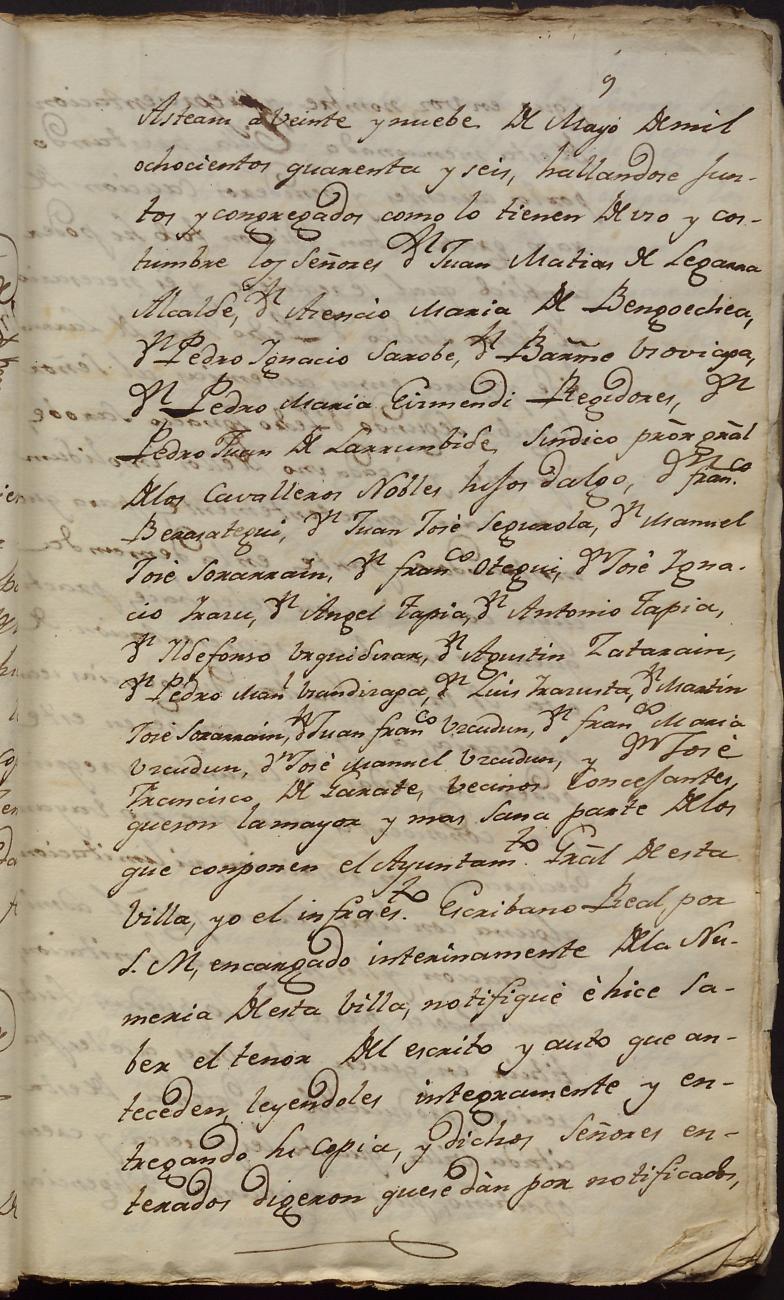 9
Asteasu a Veinte y nuebe de Mayo de mil
ochocientos quarenta y seis, hallandose jun-
tos y congregados como lo tienen de uso y cos-
tumbre los Señores dn Juan Matias de Legarra
Alcalde, dn Asencio Maria de Bengoechea,
dn Pedro Ignacio Sarobe, dn Barme
dn Pedro Maria Eizmendi Regidores, dn
Pedro Juan de Larrunbide, Sindico prōr grāl
de los Cavalleros Nobles hijos dalgo, dn franco
Berasategui, dn Juan José Segurola, dn Manuel
José Sorarrain, dn franco Otegui, dn José Igna-
cio Irazu, dn Angel Tapia, dn Antonio Tapia,
dn Ildefonso Urquidizar, dn Agustin Zatarain,
dn Pedro Manl Irandizaga, dn Luis Irazusta, dn Martin
José Sorarrain, dn Juan franco Urcudun, dn franco Maria
Urcudun, dn José Manuel Urcudun, y dn José
Francisco de Garate, Vecinos Concejantes,
que son la mayor y mas sana parte de los
que conponen el Ayuntamto. Grāl de esta
Villa, yo el infraesto. Escribano Real por
S. M, encargado interinamente de la Nu-
meria de esta Villa, notifiqué è hice sa-
ber el tenor del escrito y auto que an-
teceden, leyendoles integramente y en-
tregando la copia, y dichos Señores en-
terados digeron que se dàn por notificados,